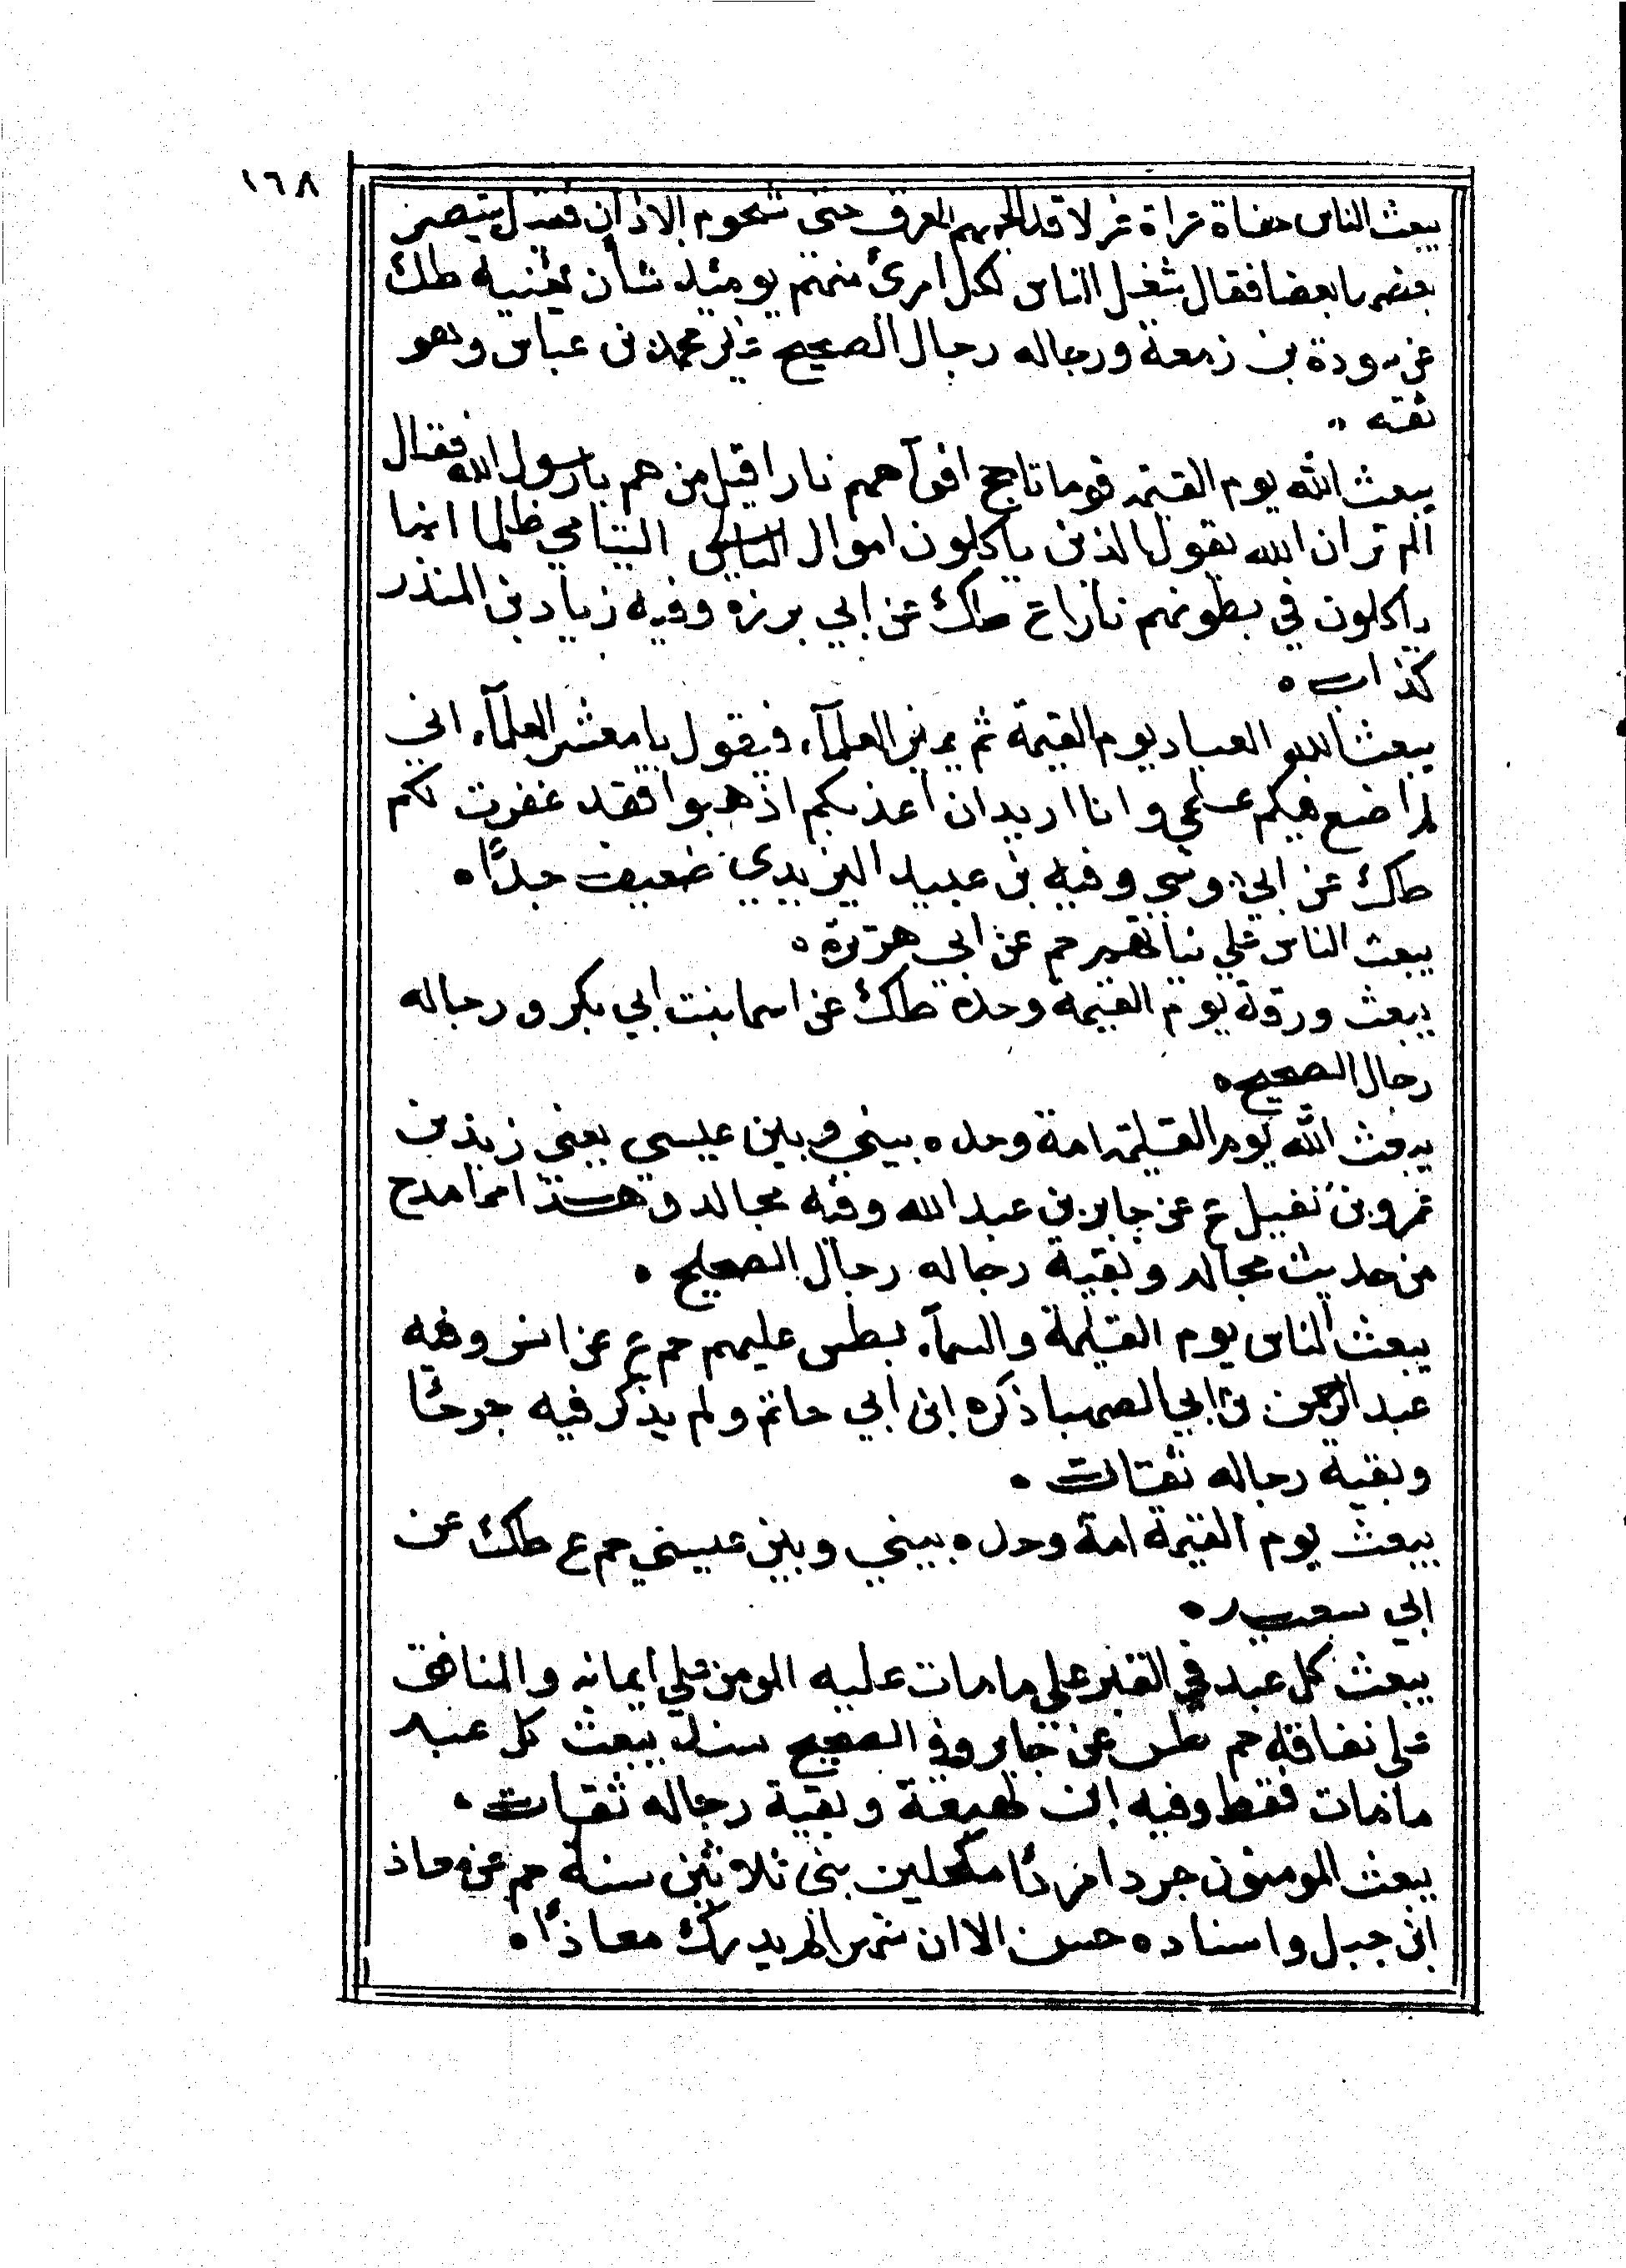 ١٦٨
يبعث الناس حفاة عراة غرلا قد الجمهم العرق حتى شحوم الاذان فقيل يبصر
بعضنا بعضا فقال شغل الناس لكل امرئ منهم يومئذ شأن يغنيه طك
عن سودة بن زمعة ورجاله رجال الصحيح غير محمد بن عباس وهو
ثقه
يبعث الله يوم القيمه قوما تاجج افوآههم نارا قيل من هم يا رسول الله فقال
الم تر ان الله يقول الذين ياكلون اموال اليتامي ظلما انما
ياكلون في بطونهم نارا ع طك عن ابي برزه وفيه زياد بن المنذر
كذاب ه
يبعث الله العباد يوم القيمة ثم يميز العلمآء فيقول يا معشر العلمآء اني
لم اضع فيكم علمي وانا اريد ان اعذبكم اذهبوا فقد غفرت لكم
طك عن ابي موسي وفيه بن عبيد اليزيدي ضعيف جدًا ه
يبعث الناس علي نياتهم حم عن ابي هريرة ه
يبعث ورقة يوم القيمة وحده طك عن اسما بنت ابي بكر ورجاله
رجال الصحيح ه
يبعث الله يوم القيمة امة وحده بيني وبين عيسي يعني زيد بن
عمرو بن نفيل ع عن جابر بن عبد الله وفيه مجالد وهذا مما مدح
من حديث مجالد وبقية رجاله رجال الصحيح ه
يبعث الناس يوم القيمة والسمآء بطس عليهم حم ع عن انس وفيه
عبد الرحمن بن ابي الصهبا ذكره ابن ابي حاتم ولم يذكر فيه جرحًا
وبقية رجاله ثقات ه
يبعث يوم القيمة امة وحده بيني وبين عيسي حم ع طك عن
ابي سعيد ه
يبعث كل عبد في القبر علي ما مات عليه المومن علي ايمانه والمنافق
علي نفاقه حم طس عن جابر وفي الصحيح سند يبعث كل عبد
ما مات فقط وفيه ابن لهيعة وبقية رجاله ثقات ه
يبعث المومنون جردا مردًا مكحلين بني ثلاثين سنة حم عن معاذ
ابن جبل واسناده حسن الا ان شهرا لم يدرك معاذًا ه